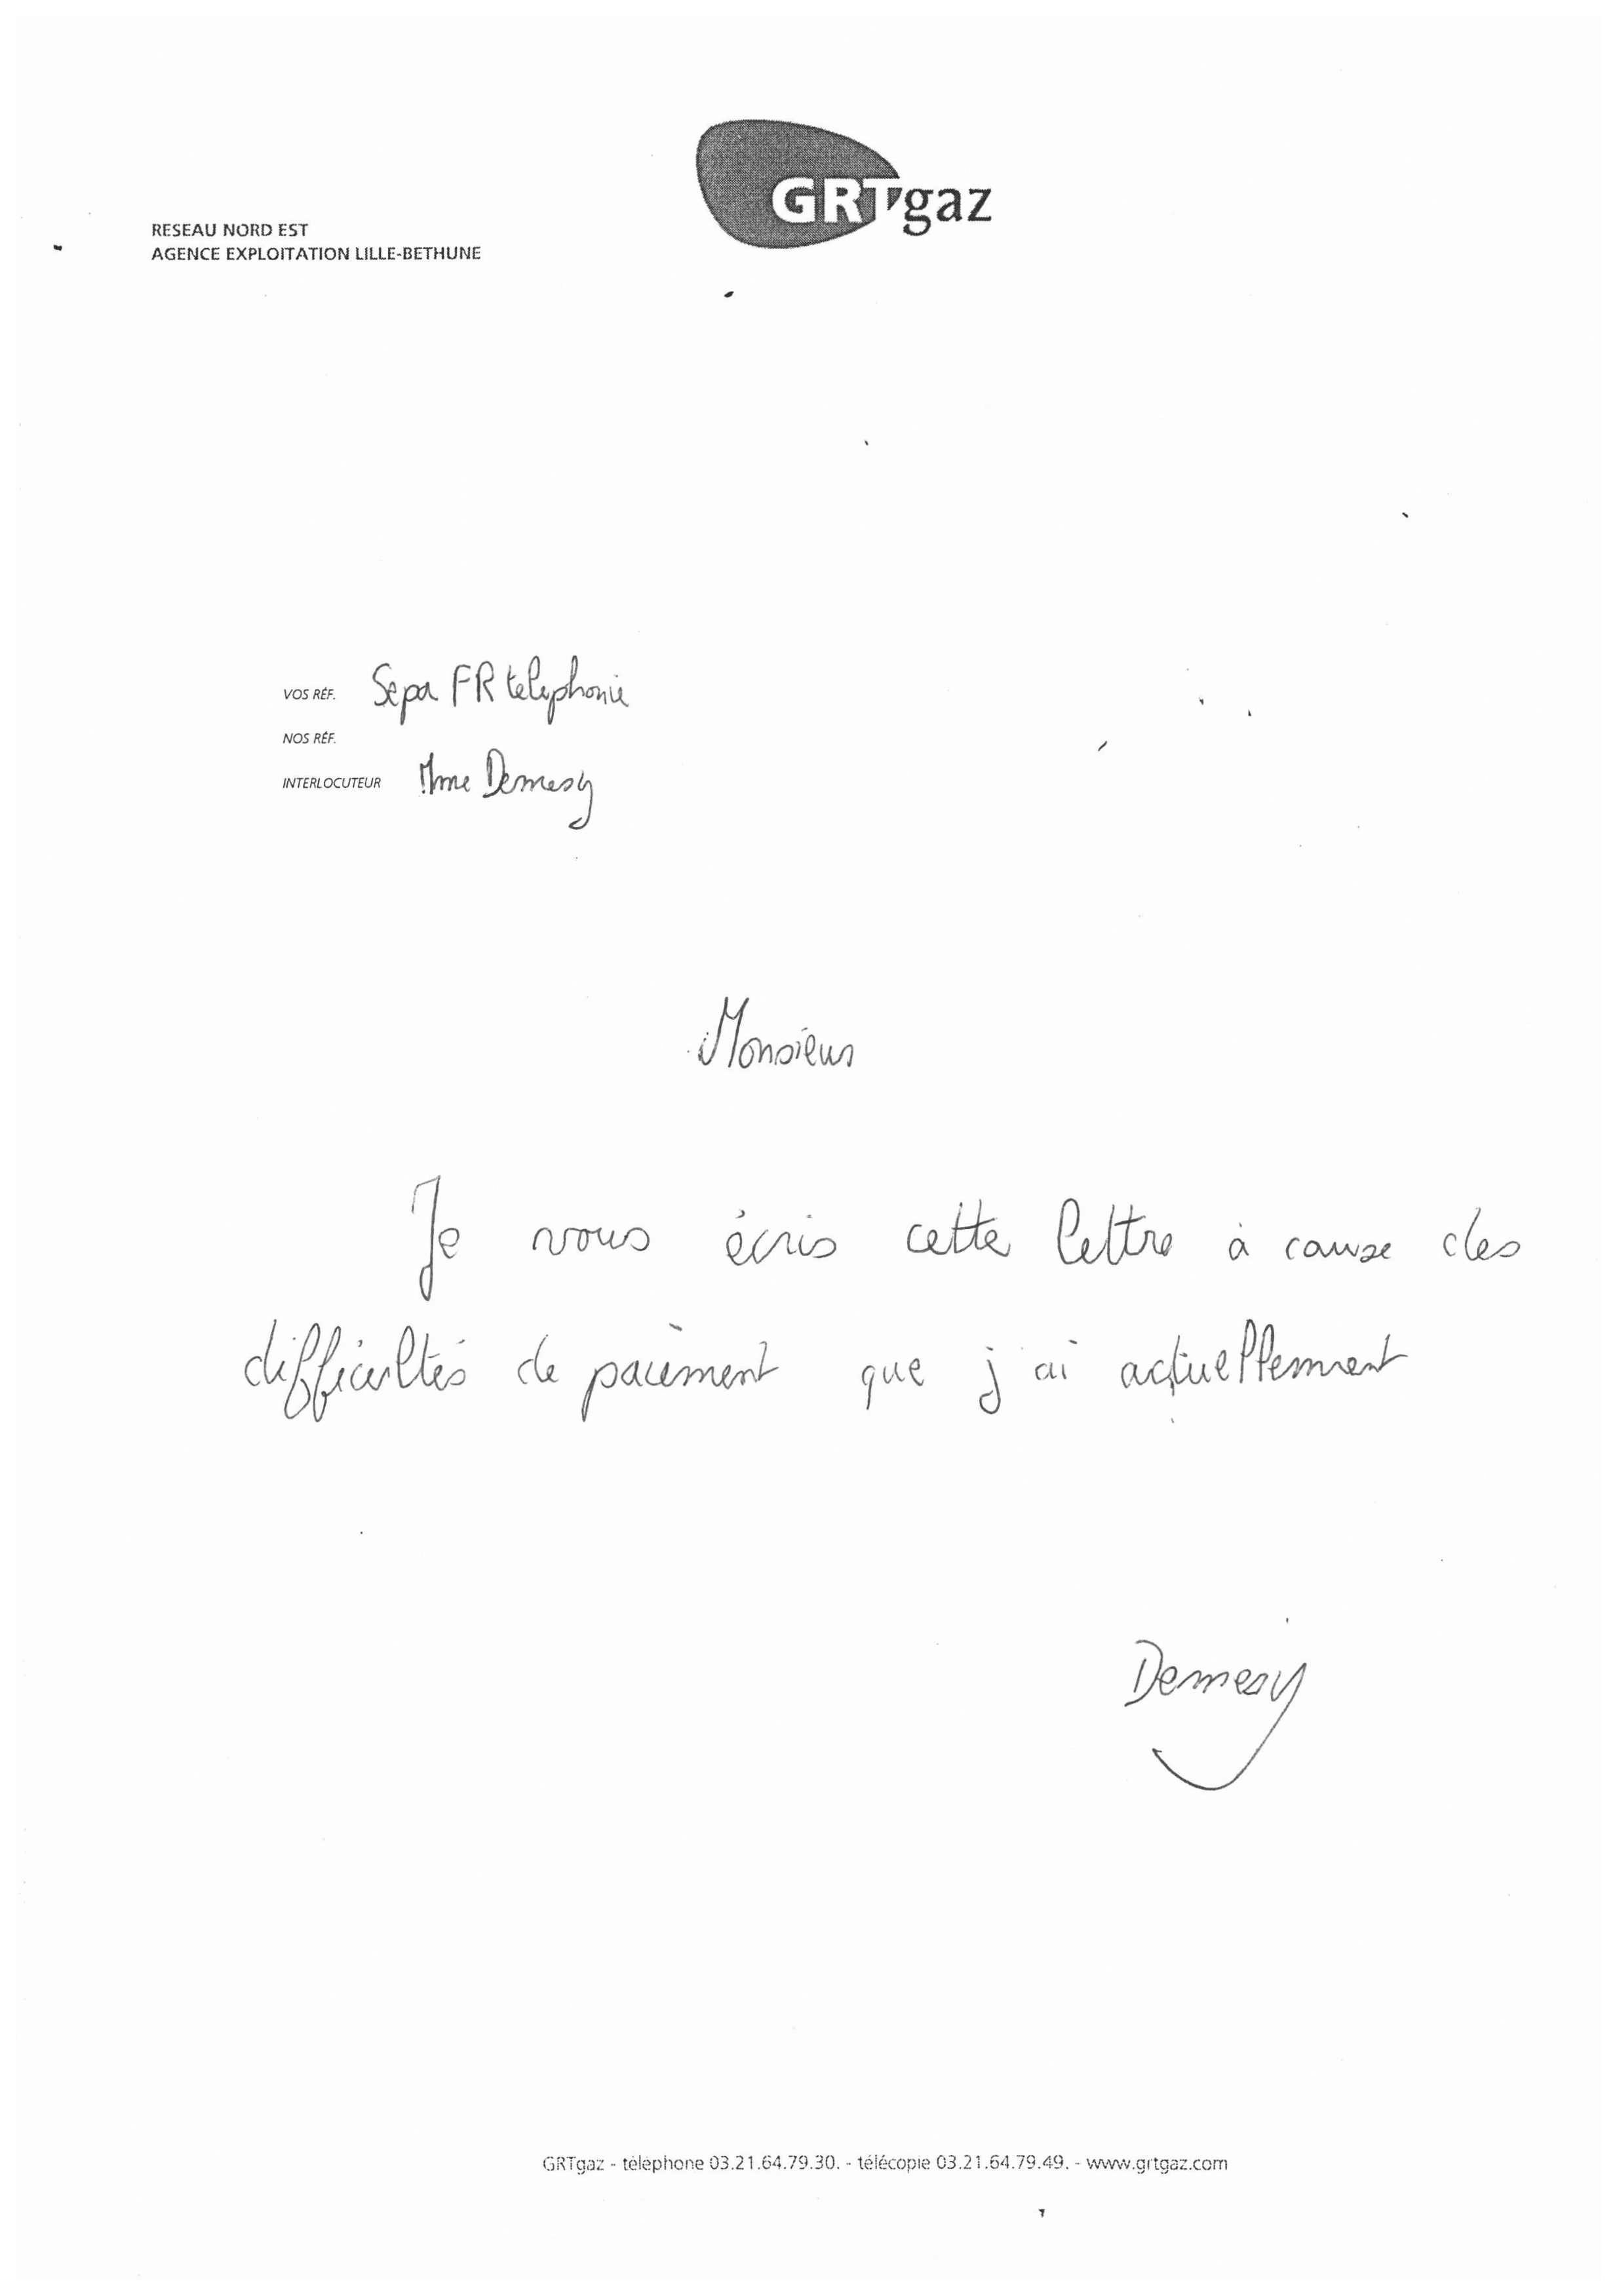 GRTgaz
RESEAU NORD EST
AGENCE EXPLOITATION LILLE-BETHUNE
VOS RÉF. Sepa FR telephonie
NOS RÉF.
INTERLOCUTEUR Mme Demesy
Monsieur
Je vous écris cette lettre à cause des
difficultés de paièment que j'ai actuellement
Demesy
GRTgaz - téléphone 03.21.64.79.30. - télécopie 03.21.64.79.49. - www.grtgaz.com